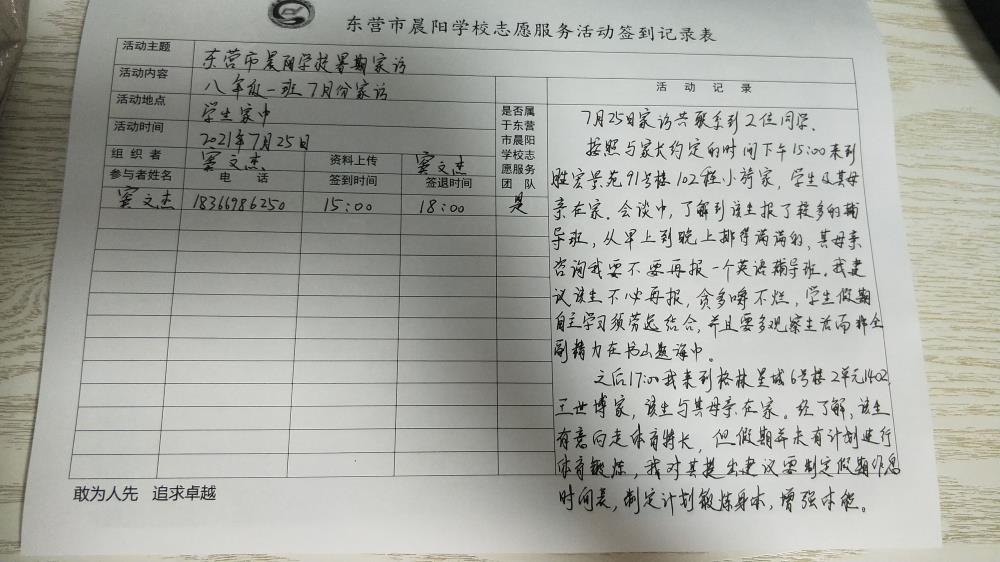 东营市晨阳学校志愿服务活动签到记录表
活动主题 东营市晨阳学校暑期家访
活动内容 八年级一班7月份家访
活动地点 学生家中
活动时间 2021年7月25日
组织者 窦文杰 资料上传 窦文杰
参与者姓名 电话 签到时间 签退时间
是否属
于东营
市晨阳
学校志
愿服务
团队
窦文杰 18366986250 15:00 18:00 是
活动记录
7月25日家访共联系到2位同学。
按照与家长约定的时间下午15:00来到
胜宏景苑91号楼102程小 家,学生及其母
亲在家。会谈中,了解到该生报了较多的辅
导班,从早上到晚上排得满满的,其母亲
咨询我要不要再报一个英语辅导班。我建
议该生不必再报,贪多嚼不烂,学生假期
自主学习须劳逸结合,并且要多观察生活而非全
副精力在书山题海中。
之后17:00我来到格林星城6号楼2单元1402
王世博家,该生与其母亲在家。经了解,该生
有意向走体育特长,但假期并未有计划进行
体育锻炼,我对其提出建议要制定假期作息
时间表,制定计划锻炼身体,增强体能。
敢为人先 追求卓越